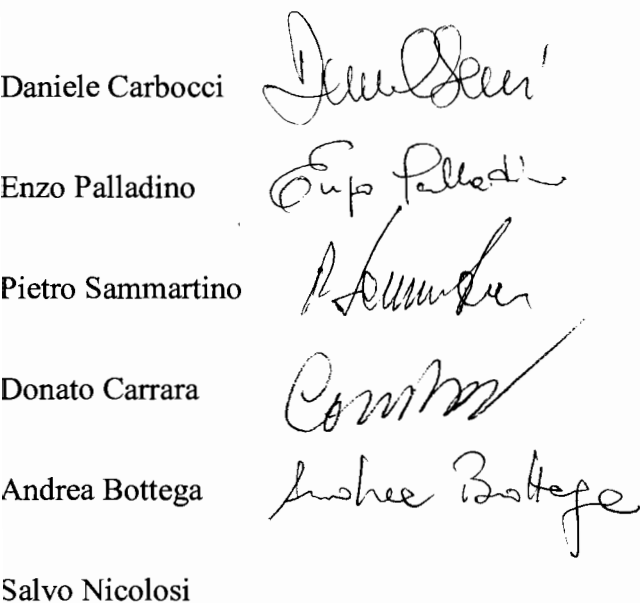 Daniele Carbocci
Enzo Palladino Enzo Palladin
Pietro Sammartino
Donato Carrara
Andrea Bottega Andrea Bottega
Salvo Nicolosi